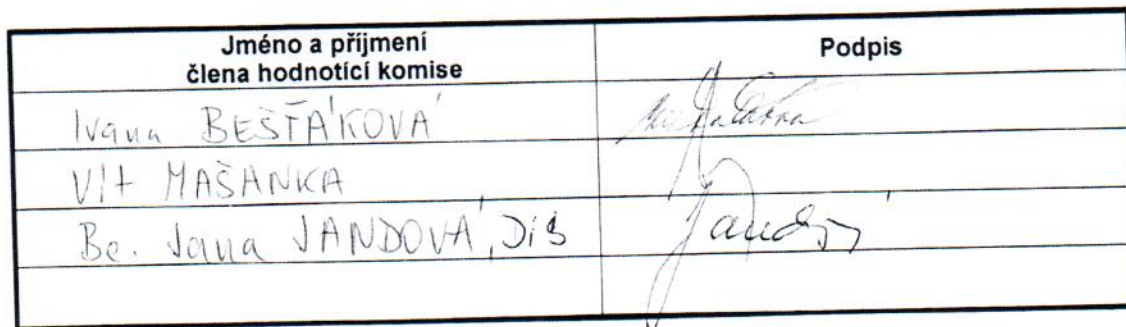 Jméno a příjmení
člena hodnotící komise
Podpis
Ivana BEŠŤÁKOVÁ
Vít MAŠANKA
Bc. Jana JANDOVÁ, DiS